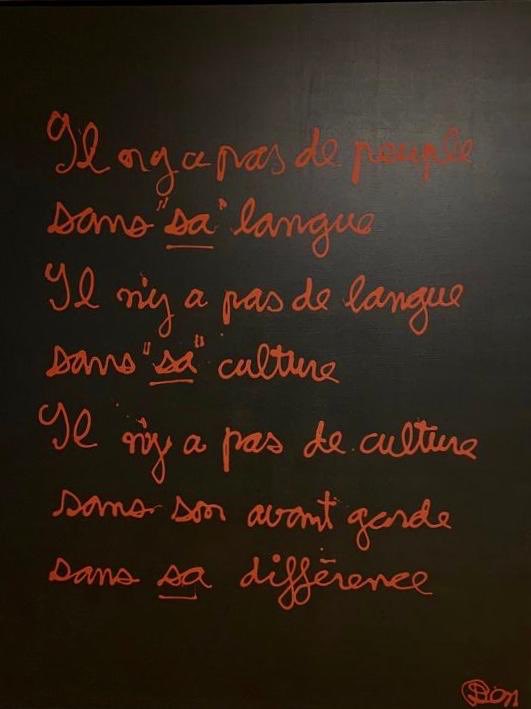 Il n'y a pas de peuple
sans "sa" langue
Il n'y a pas de langue
sans "sa" culture
Il n'y a pas de culture
sans son avant garde
sans sa différence
Ben